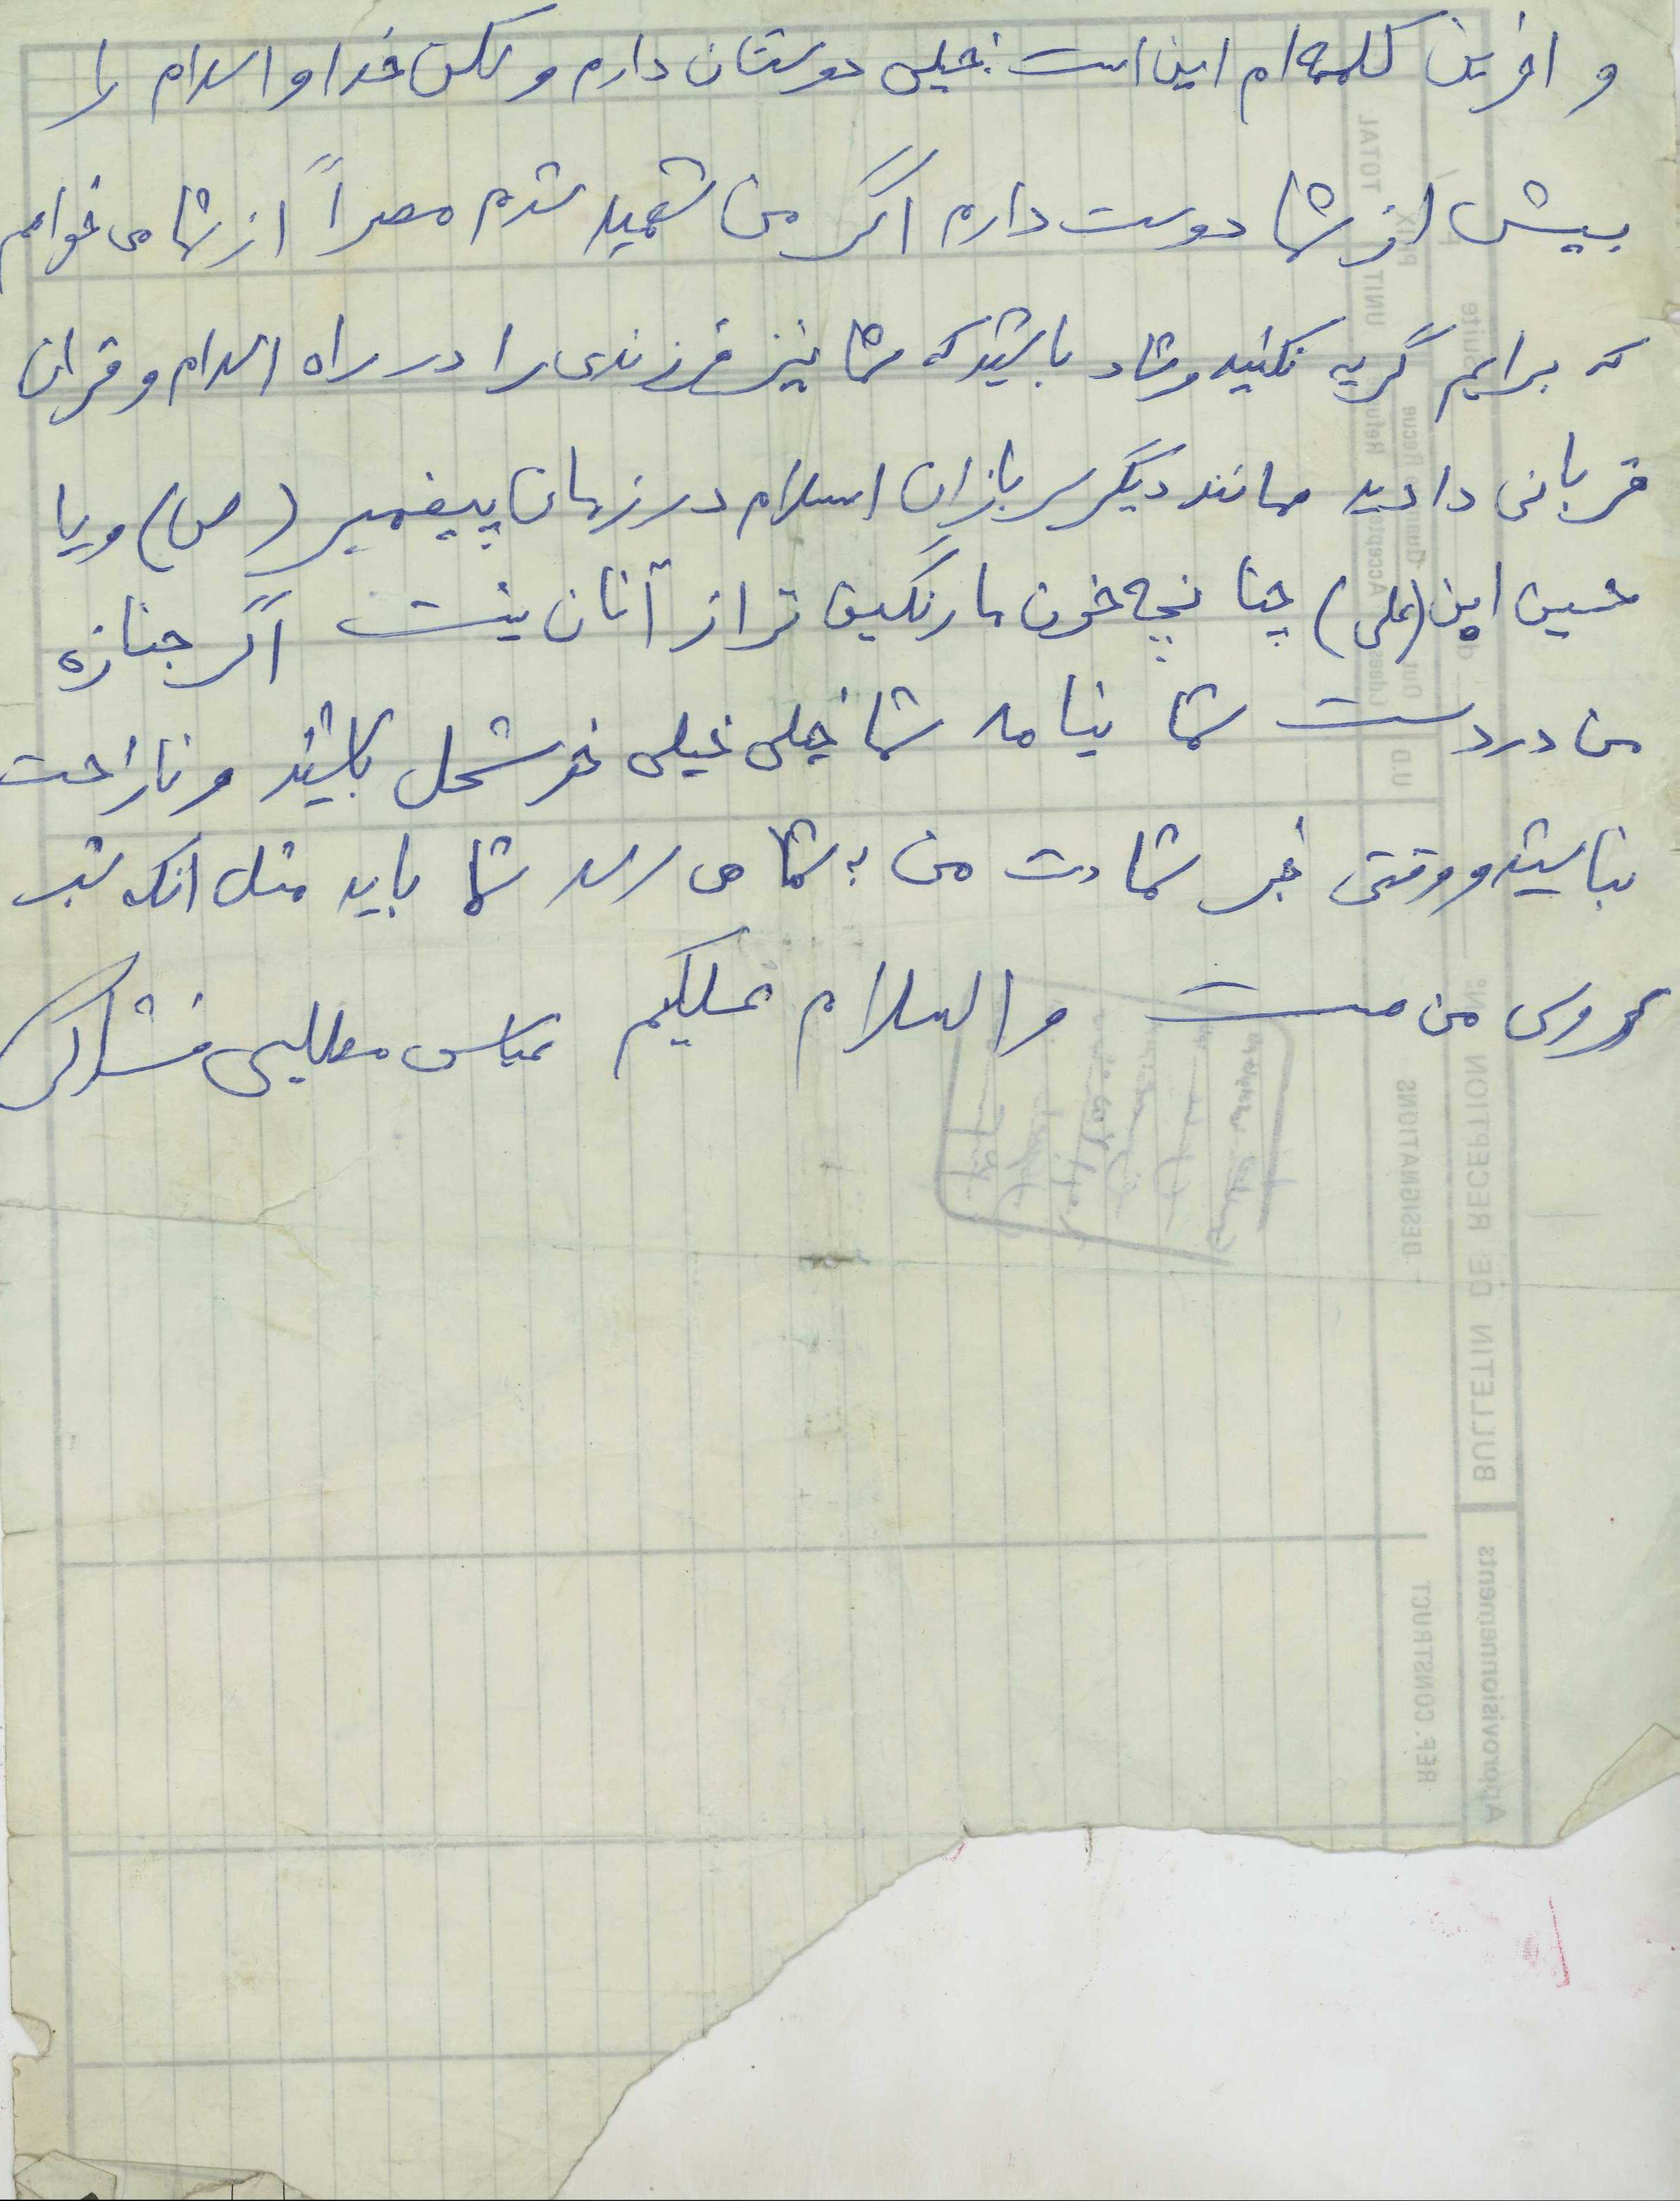 و اخرین کلمه ام این است خیلی دوستان دارم و لکن خدا و اسلام را
بیش از شما دوست دارم اگر من شهید شدم مصراً از شما می خواهم
که برایم گریه نکنید و شاد باشید که شما نیز فرزندی را در راه اسلام و قران
قربانی دادید همانند دیگر سربازان اسلام در زمان پیغمبر (ص) و یا
حسین ابن (علی) چنانچه خون ما رنگین تر از آنان نیست اگر جنازه
من در دست شما نیامد شما خیلی خیلی خوشحل باشید و ناراحت
نباشید و وقتی خبر شهادت من به شما می رسد شما باید مثل انکه شب
عروسی من است والسلام علیکم عباس مطلبی فشارکی
BULLETIN DE RECEPTION N°
Approvisionnements
REF. CONSTRUCT
DESIGNATIONS
UNIT
TOTAL
PRIX